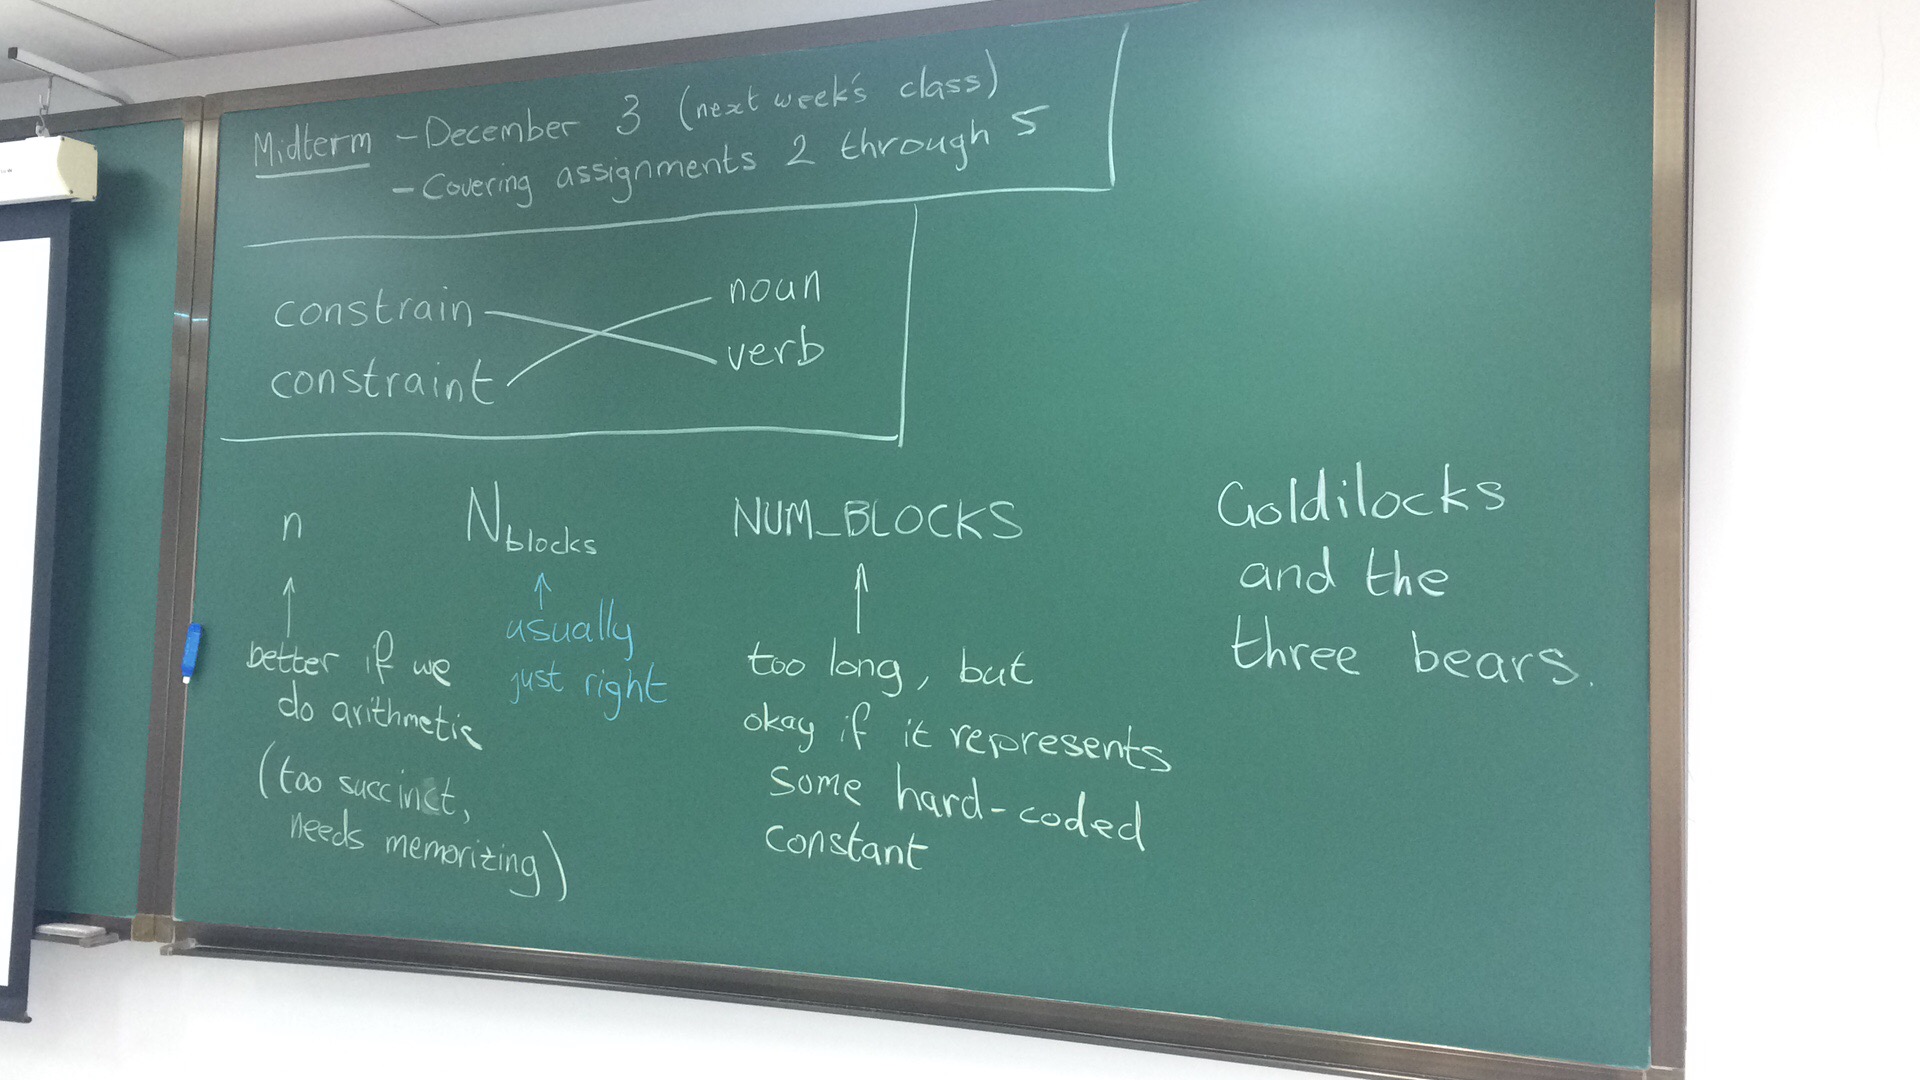 Midterm - December 3 (next week's class)
- Covering assignments 2 through 5
constrain noun
constraint verb
n
better if we
do arithmetic
(too succinct,
needs memorizing)
Nblocks
usually
just right
NUM_BLOCKS
too long, but
okay if it represents
some hard-coded
constant
Goldilocks
and the
three bears.